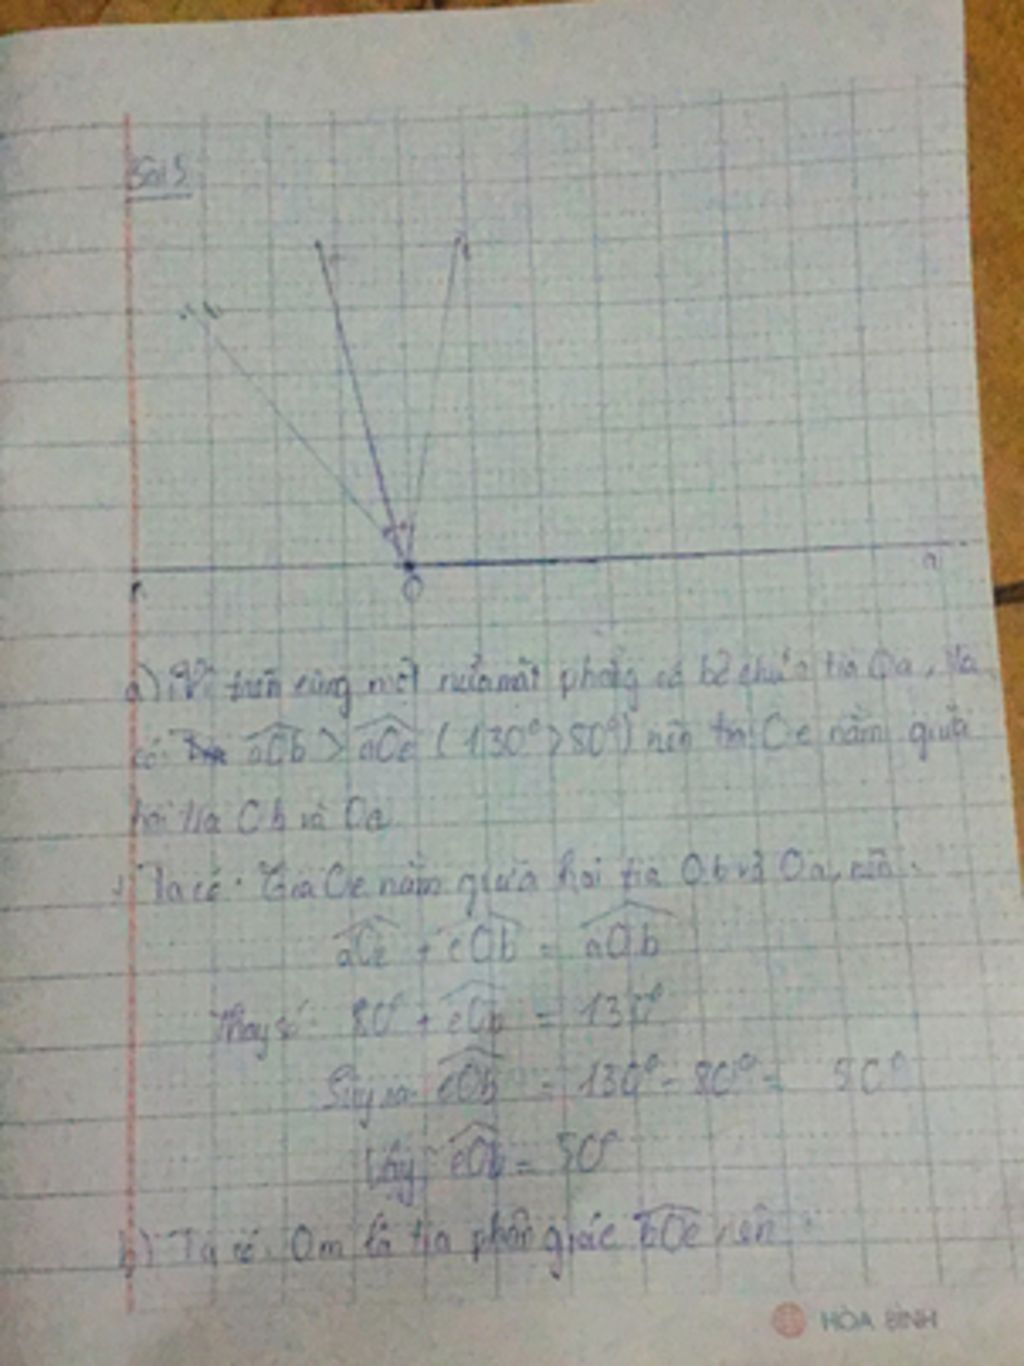 Bài 5
O
a
a) Vì trên cùng một nửa mặt phẳng có bờ chứa tia Oa, ta
có aOb > aOe (130° > 80°) nên tia Oe nằm giữa
hai tia Ob và Oa
Ta có: Tia Oe nằm giữa hai tia Ob và Oa, nên:
aOe + eOb = aOb
Thay số: 80° + eOb = 130°
Suy ra: eOb = 130° - 80° = 50°
Vậy eOb = 50°
b) Ta có: Om là tia phân giác bOe nên:
HÒA BÌNH